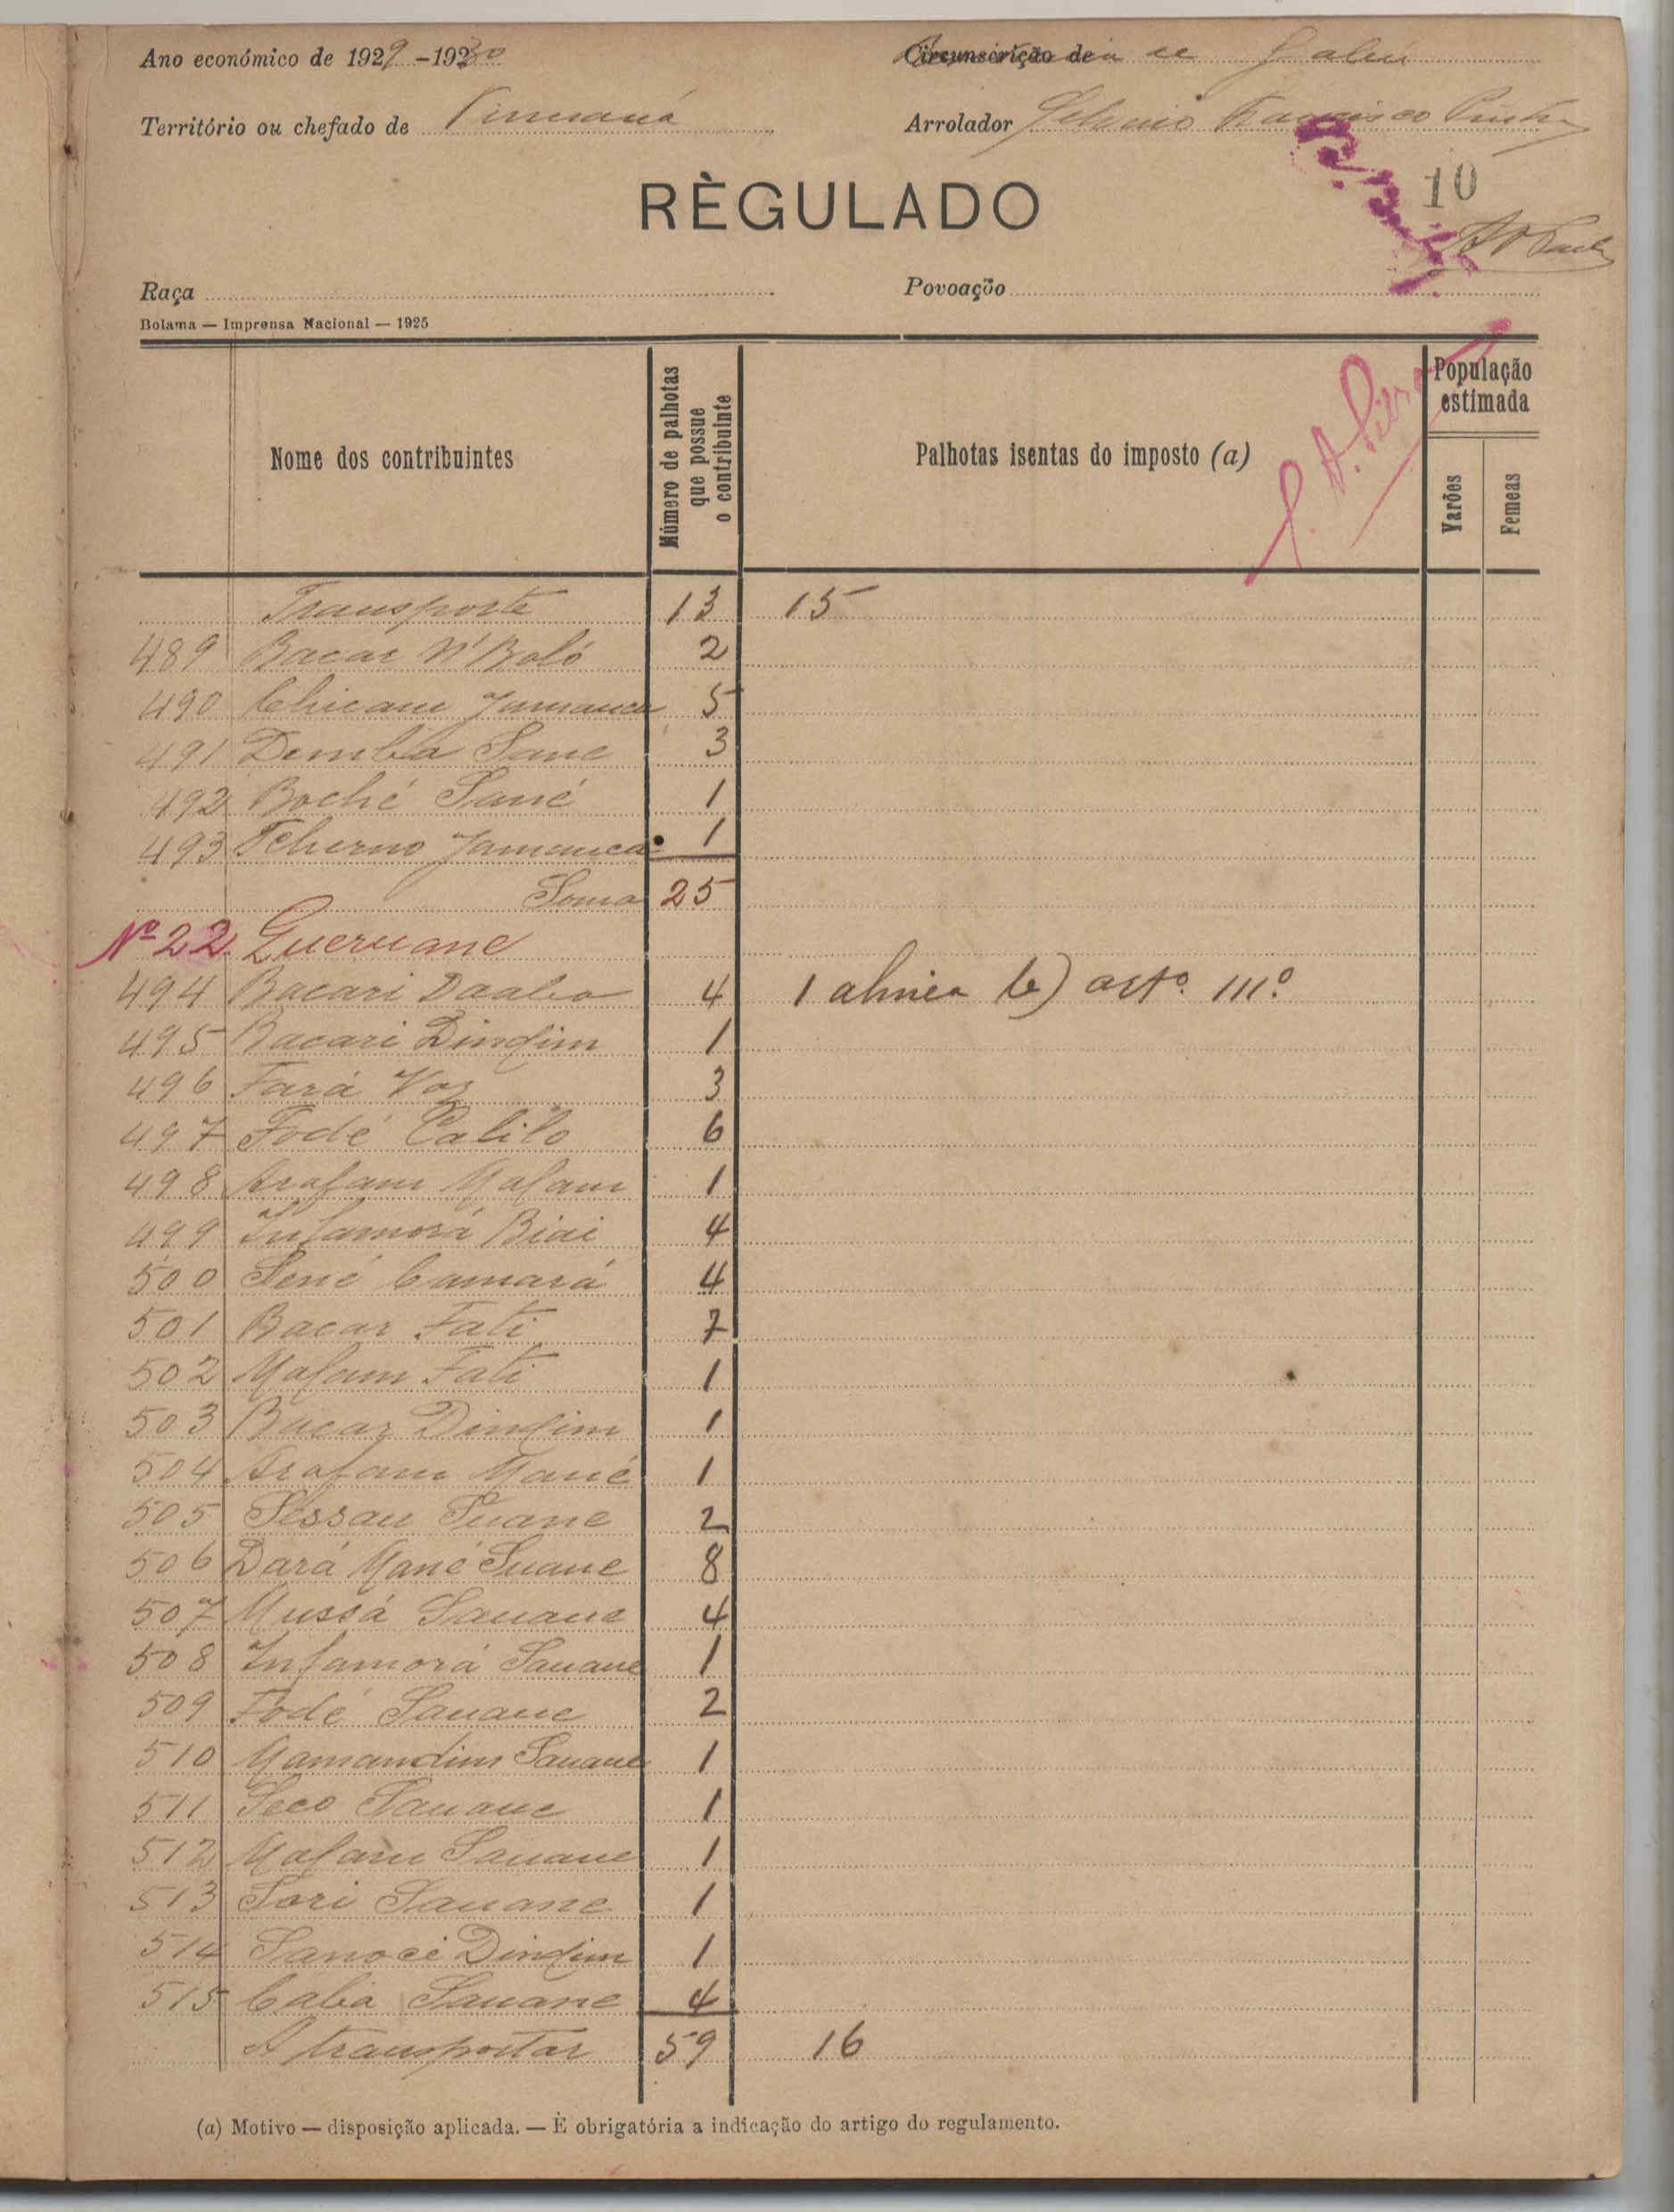 Ano económico de 1929-1930
Circunscrição de
Território ou chefado de
Arrolador Francisco
10
RÈGULADO
Raça
Povoação
Bolama — Imprensa Nacional — 1925
Nome dos contribuintes
Número de palhotas que possue o contribuinte
Palhotas isentas do imposto (a)
População estimada
Varões
Femeas
Transporte 13 15
489 Bacar N'Boló 2
490 5
491 Demba Sane 3
492 Boché Sané 1
493 Tcherno Jamanca 1
Soma 25
Nº 22 Queruane
494 Bacari Daabo 4 1 alinea b) artº. 111º
495 Bacari Dindim 1
496 Fará Vaz 3
497 Fodé Calilo 6
498 Arafam Malam 1
499 Infamorá Biai 4
500 Sené Camará 4
501 Bacar Fati 7
502 Malam Fati 1
503 Bacar Dindim 1
504 Arafam Mané 1
505 Sessau Suane 2
506 Dará Mané Suane 8
507 Mussá Sauane 4
508 Infamorá Sauane 1
509 Fodé Sauane 2
510 Mamandim Sauane 1
511 Seco Sauane 1
512 Malam Sauane 1
513 Sori Sauane 1
514 Dindim 1
515 Caba Sauane 4
A transportar 59 16
(a) Motivo — disposição aplicada. — É obrigatória a indicação do artigo do regulamento.